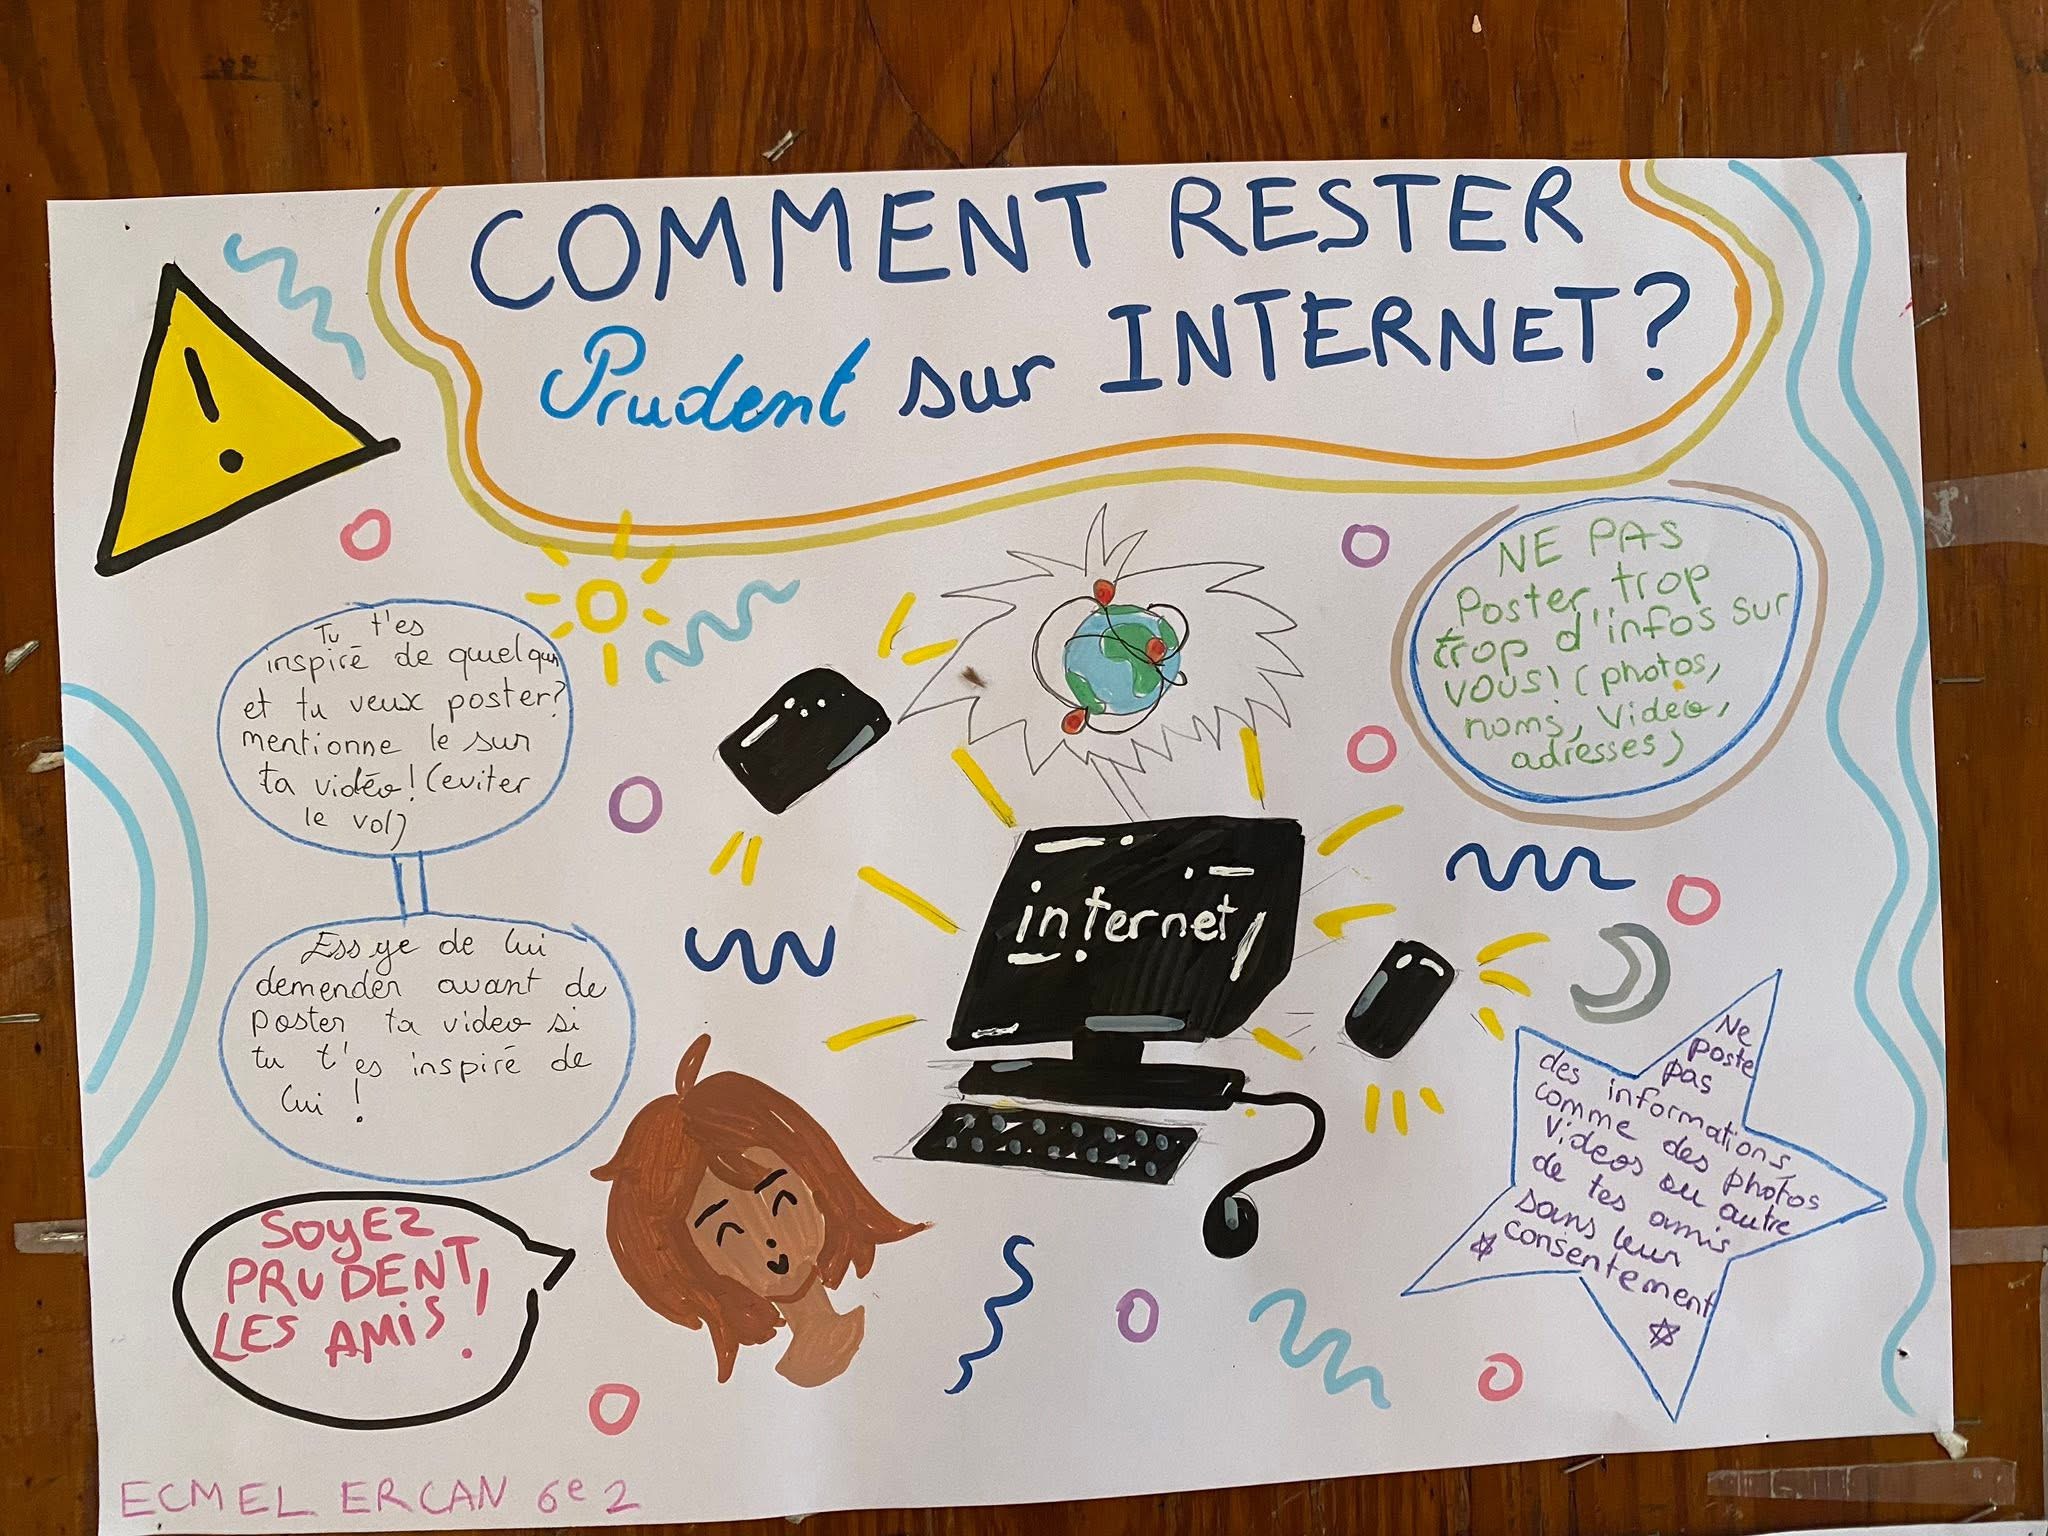 COMMENT RESTER
Prudent sur INTERNET?
!
Tu t'es
inspiré de quelqun
et tu veux poster?
mentionne le sur
ta vidéo! (eviter
le vol)
NE PAS
Poster trop
trop d'infos sur
VOUS! (photos,
noms, vidéo,
adresses)
internet
Essye de lui
demender avant de
poster ta video si
tu t'es inspiré de
lui !
Ne
poste
pas
des informations,
comme des photos
videos ou autre
de tes amis
sans leur
consentement
SOYEZ
PRUDENT,
LES AMIS!
ECMEL ERCAN 6e2